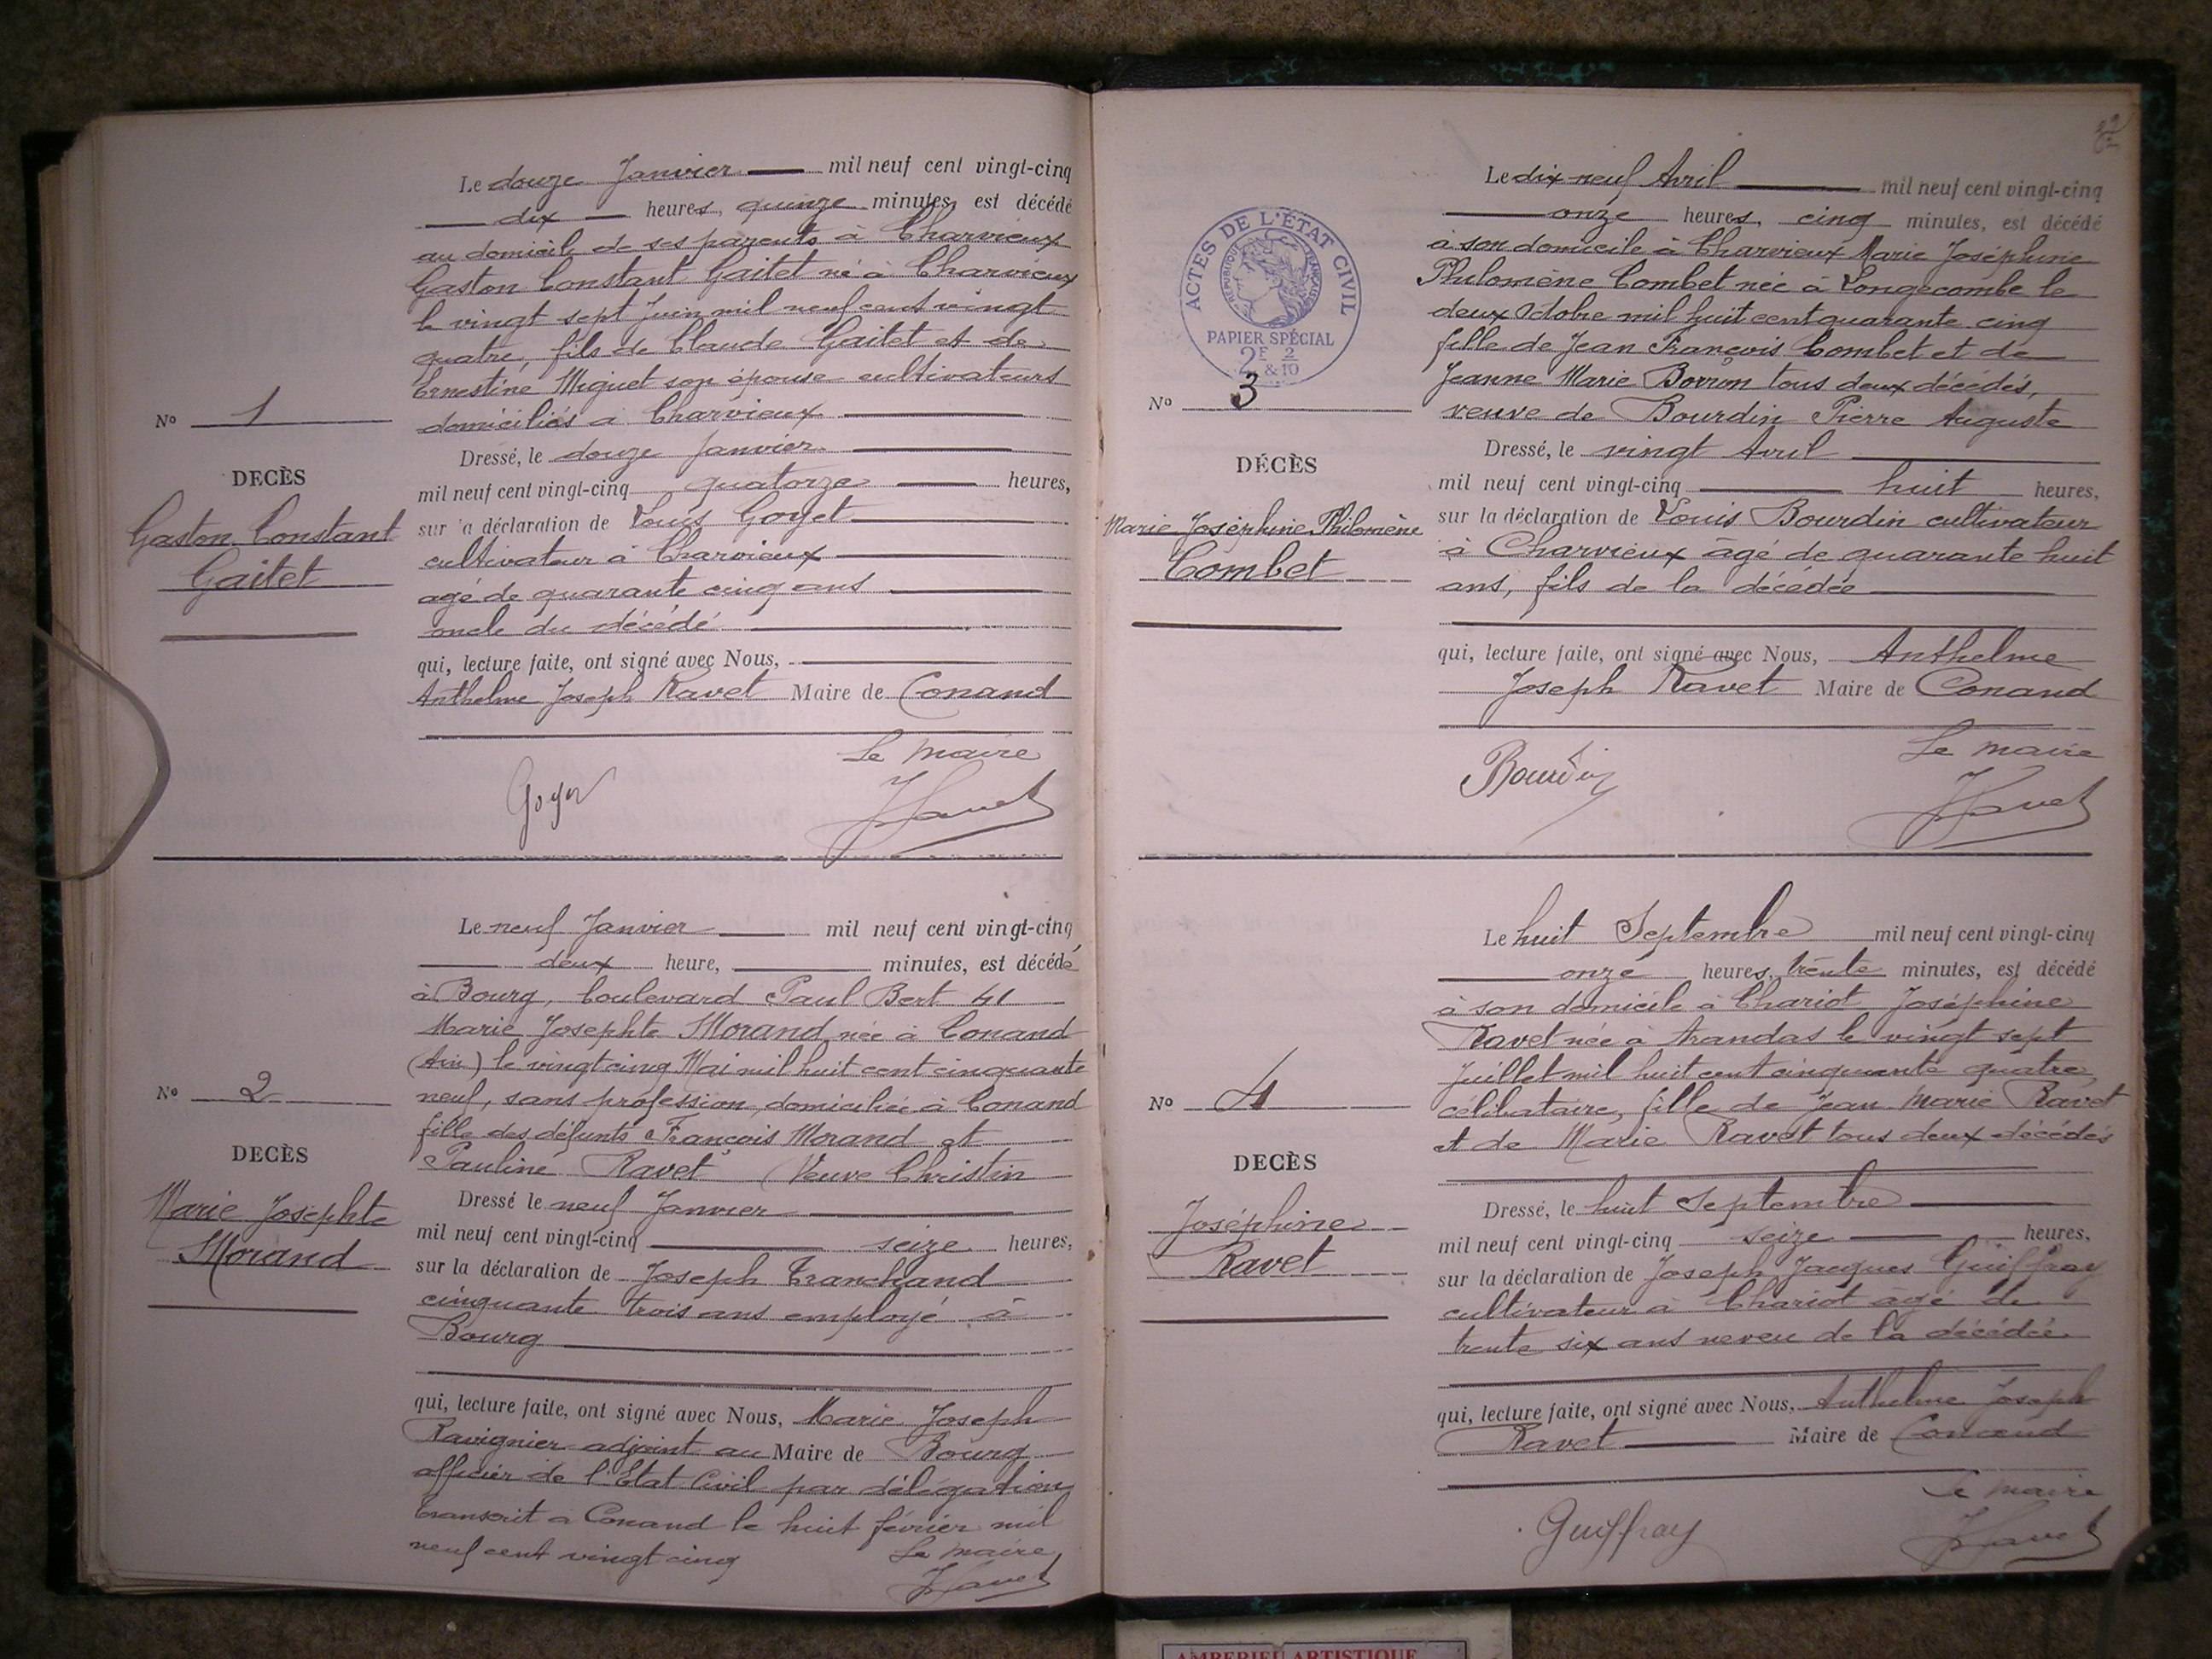 Le douze Janvier mil neuf cent vingt-cinq
dix heures, quinze minutes, est décédé
au domicile de ses parents à Charvieux
Gaston Constant Gaitet né à Charvieux
le vingt sept Juin mil neuf cent vingt
quatre, fils de Claude Gaitet et de
Ernestine Miguet son épouse cultivateurs
domiciliés à Charvieux
Nº 1
Dressé, le douze Janvier
DECÈS
mil neuf cent vingt-cinq quatorze heures,
Gaston Constant
Gaitet
sur la déclaration de Louis Goyet
cultivateur à Charvieux
agé de quarante cinq ans
oncle du décédé
qui, lecture faite, ont signé avec Nous,
Anthelme Joseph Ravet Maire de Conand
Le maire
Goyet
JRavet
Le neuf Janvier mil neuf cent vingt-cinq
deux heure, minutes, est décédé
à Bourg, boulevard Paul Bert 41
Marie Josephte Morand née à Conand
(Ain) le vingt cinq Mai mil huit cent cinquante
neuf, sans profession, domiciliée à Conand
fille des défunts François Morand et
Pauline Ravet Veuve Christin
Nº 2
DECÈS
Marie Josephte
Morand
Dressé le neuf Janvier
mil neuf cent vingt-cinq seize heures,
sur la déclaration de Joseph Tranchand
cinquante trois ans employé à
Bourg
qui, lecture faite, ont signé avec Nous, Marie Joseph
Ravignier adjoint au Maire de Bourg
officier de l'Etat Civil par délégation
Transcrit a Conand le huit février mil
neuf cent vingt cinq Le maire
JRavet
Le dix neuf Avril mil neuf cent vingt-cinq
onze heures, cinq minutes, est décédé
à son domicile à Charvieux Marie Joséphine
Philomène Combet née à Longecombe le
deux Octobre mil huit cent quarante cinq
fille de Jean François Combet et de
Jeanne Marie Borron tous deux décédés,
veuve de Bourdin Pierre Auguste
ACTES DE L'ÉTAT CIVIL
RÉPUBLIQUE FRANÇAISE
PAPIER SPÉCIAL
2F & 2/10
Nº 3
DÉCÈS
Marie Joséphine Philomène
Combet
Dressé, le vingt Avril
mil neuf cent vingt-cinq huit heures,
sur la déclaration de Louis Bourdin cultivateur
à Charvieux âgé de quarante huit
ans, fils de la décédée
qui, lecture faite, ont signé avec Nous, Anthelme
Joseph Ravet Maire de Conand
Le maire
Bourdin
JRavet
Le huit Septembre mil neuf cent vingt-cinq
onze heures, trente minutes, est décédé
à son domicile à Chariot Joséphine
Ravet née à Arandas le vingt sept
Juillet mil huit cent cinquante quatre,
célibataire, fille de Jean Marie Ravet
et de Marie Ravet tous deux décédés
Nº 4
DECÈS
Joséphine
Ravet
Dressé, le huit Septembre
mil neuf cent vingt-cinq seize heures,
sur la déclaration de Joseph Jacques Guiffray
cultivateur à Chariot agé de
trente six ans neveu de la décédée
qui, lecture faite, ont signé avec Nous, Anthelme Joseph
Ravet Maire de Conand
Le maire
Guiffray
JRavet
AMBERIEU ARTISTIQUE